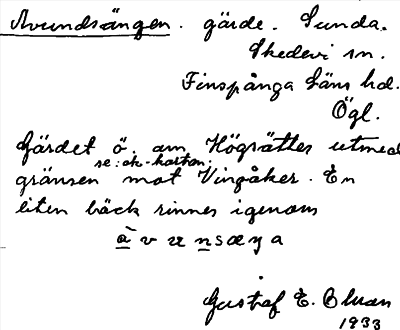 Avundsängen. gärde. Sunda.
Skedevi sn.
Finspånga läns hd.
Ögl.
Gärdet ö. om Högsätter utmed
se: ek-kartan:
gränsen mot Vingåker. En
liten bäck rinner igenom
Gustaf E. Bluan
1933